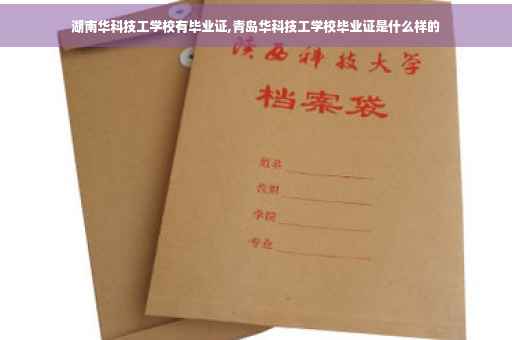 湖南华科技工学校有毕业证,青岛华科技工学校毕业证是什么样的
陕西科技大学
档案袋
姓名
性别
学院
专业